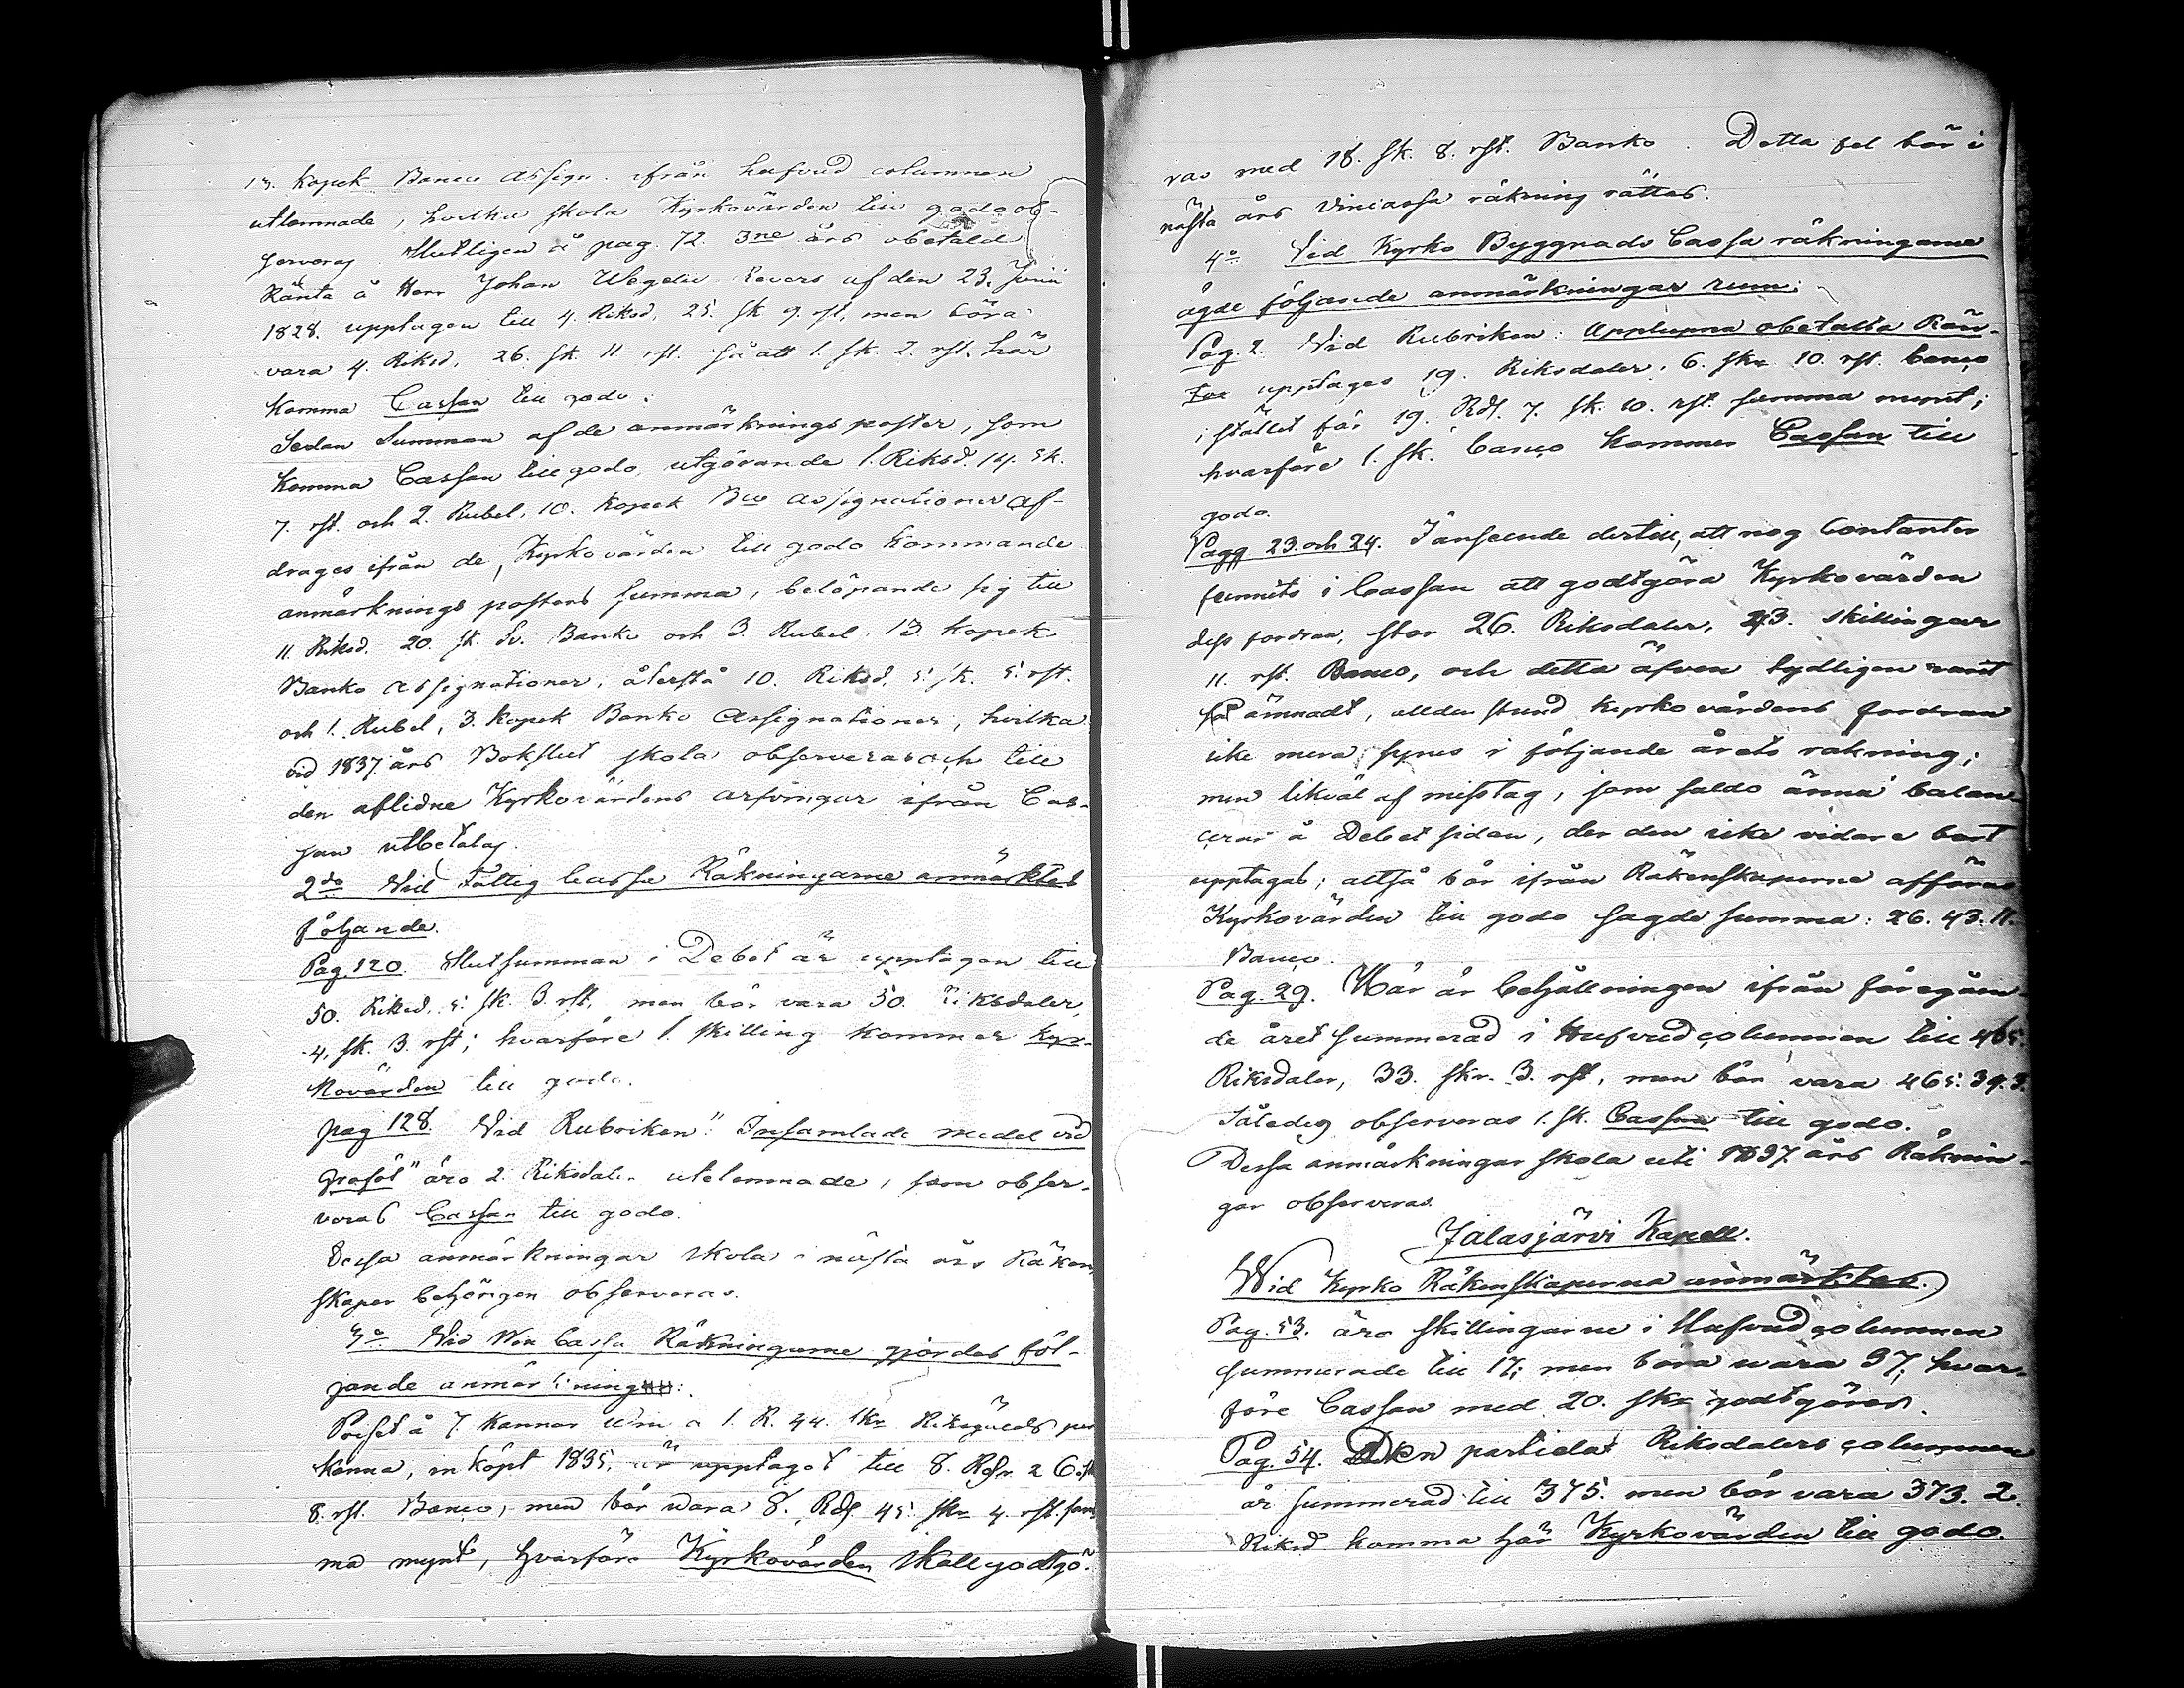 13. Kopek Banco Assign. ifrån hufvud columnen
utlemnade, hvilka skola Kyrkovärden till godo ob-
serveras. Slutligen å pag. 72. 3ne års obetald
Ränta å Herr Johan Wegelii Revers af den 23. Junii
1828. upptagen till 4. Riksd. 25. sk 9. rst. men böra
vara 4. Riksd. 26. sk. 11 rst. så att 1. sk. 2. rst. här
komma Cassan till godo.
Sedan Summan af de anmärknings poster, som
komma Cassan till godo, utgörande 1. Riksd. 14. sk.
7. rst. och 2. Rubel. 10. Kopek Bco assignationer af-
drages ifrån de, Kyrkovärden till godo kommande
anmärknings postens summa, belöpande sig till
11. Riksd. 20. sk. Sv. Banko och 3. Rubel. 13. Kopek
Banko Assignationer, återstå 10. Riksd. 5. sk. 5. rst.
och 1. Rubel, 3. Kopek Banko Assignationer, hvilka
vid 1837. års Bokslut skola observeras och till
den aflidne Kyrkovärdens arfvingar ifrån Cas-
san utbetalas.
2do Vid Fattig Cassa Räkningarne anmärktes
följande.
Pag. 120. Slutsumman i Debet är upptagen till
50. Riksd. 5. sk. 3. rst. men bör vara 50. Riksdaler,
4. sk. 3. rst; hvarföre 1. skilling kommer Kyr-
kovärden till godo.
pag 128. Vid Rubriken: "Insamlade medel vid
graföl" äro 2. Riksdaler utelemnade, som obser-
veras Cassan till godo.
Dessa anmärkningar skola i nästa års Räken-
skaper behörigen observeras.
3o Vid Vin Cassa Räkningarne gjordes föl-
jande anmärkning:
Priset å 7. kannor vin a 1. R. 44. skr Riksgälds per
kanna, inköpt 1835. är upptaget till 8. Rdr. 26. sk
8. rst. Banco, men bör vara 8. Rds. 45. skr 4. rst. sam-
ma mynt, hvarföre Kyrkovärden skall godtgö-
ras med 18. sk. 8. rst. Banko. Detta fel bör i
nästa års Vincassa räkning rättas.
4o Vid Kyrko Byggnads Cassa räkningarne
ägde följande anmärkningar rum:
Pag. 2. Vid Rubriken: Upplupna obetalta Rän-
tor upptages 19. Riksdaler. 6. skr 10. rst. banco
i stället för 19. Rds. 7. sk. 10. rst. samma mynt;
hvarföre 1. sk. banco kommer Cassan till
godo.
Pagg 23. och 24. I anseende dertill, att nog Contanter
funnits i Cassan att godtgöra Kyrkovärden
dess fordran, stor 26. Riksdaler, 43. skillingar
11. rst. Banco, och detta äfven tydligen varit
så ämnadt, alldenstund kyrkovärdens fordran
icke mera synes i följande årets räkning;
men likväl af misstag, som saldo ännu balan-
cerar å Debet sidan, der den icke vidare bort
upptagas; altså bör ifrån Räkenskaperne afföras
Kyrkovärden till godo sagde summa: 26. 43. 11.
Banco.
Pag. 29. Här är behållningen ifrån föregåen-
de året summerad i Hufvudcolumnen till 465.
Riksdaler, 33. skr. 3. rst, men bör vara 465. 34. 3.
Således observeras 1. sk. Cassan till godo.
Dessa anmärkningar skola uti 1837. års Räknin-
gar observeras.
Jalasjärvi Kapell.
Wid Kyrko Räkenskaperna anmärktes.
Pag. 53. äro skillingarne i Hufvudcolumnen
summerade till 17; men böra wara 37, hvar-
före Cassan med 20. skr godtgöres.
Pag. 54. Den partiela Riksdalers columnen
är summerad till 375. men bör vara 373. 2.
Riksd komma här Kyrkovärden till godo.